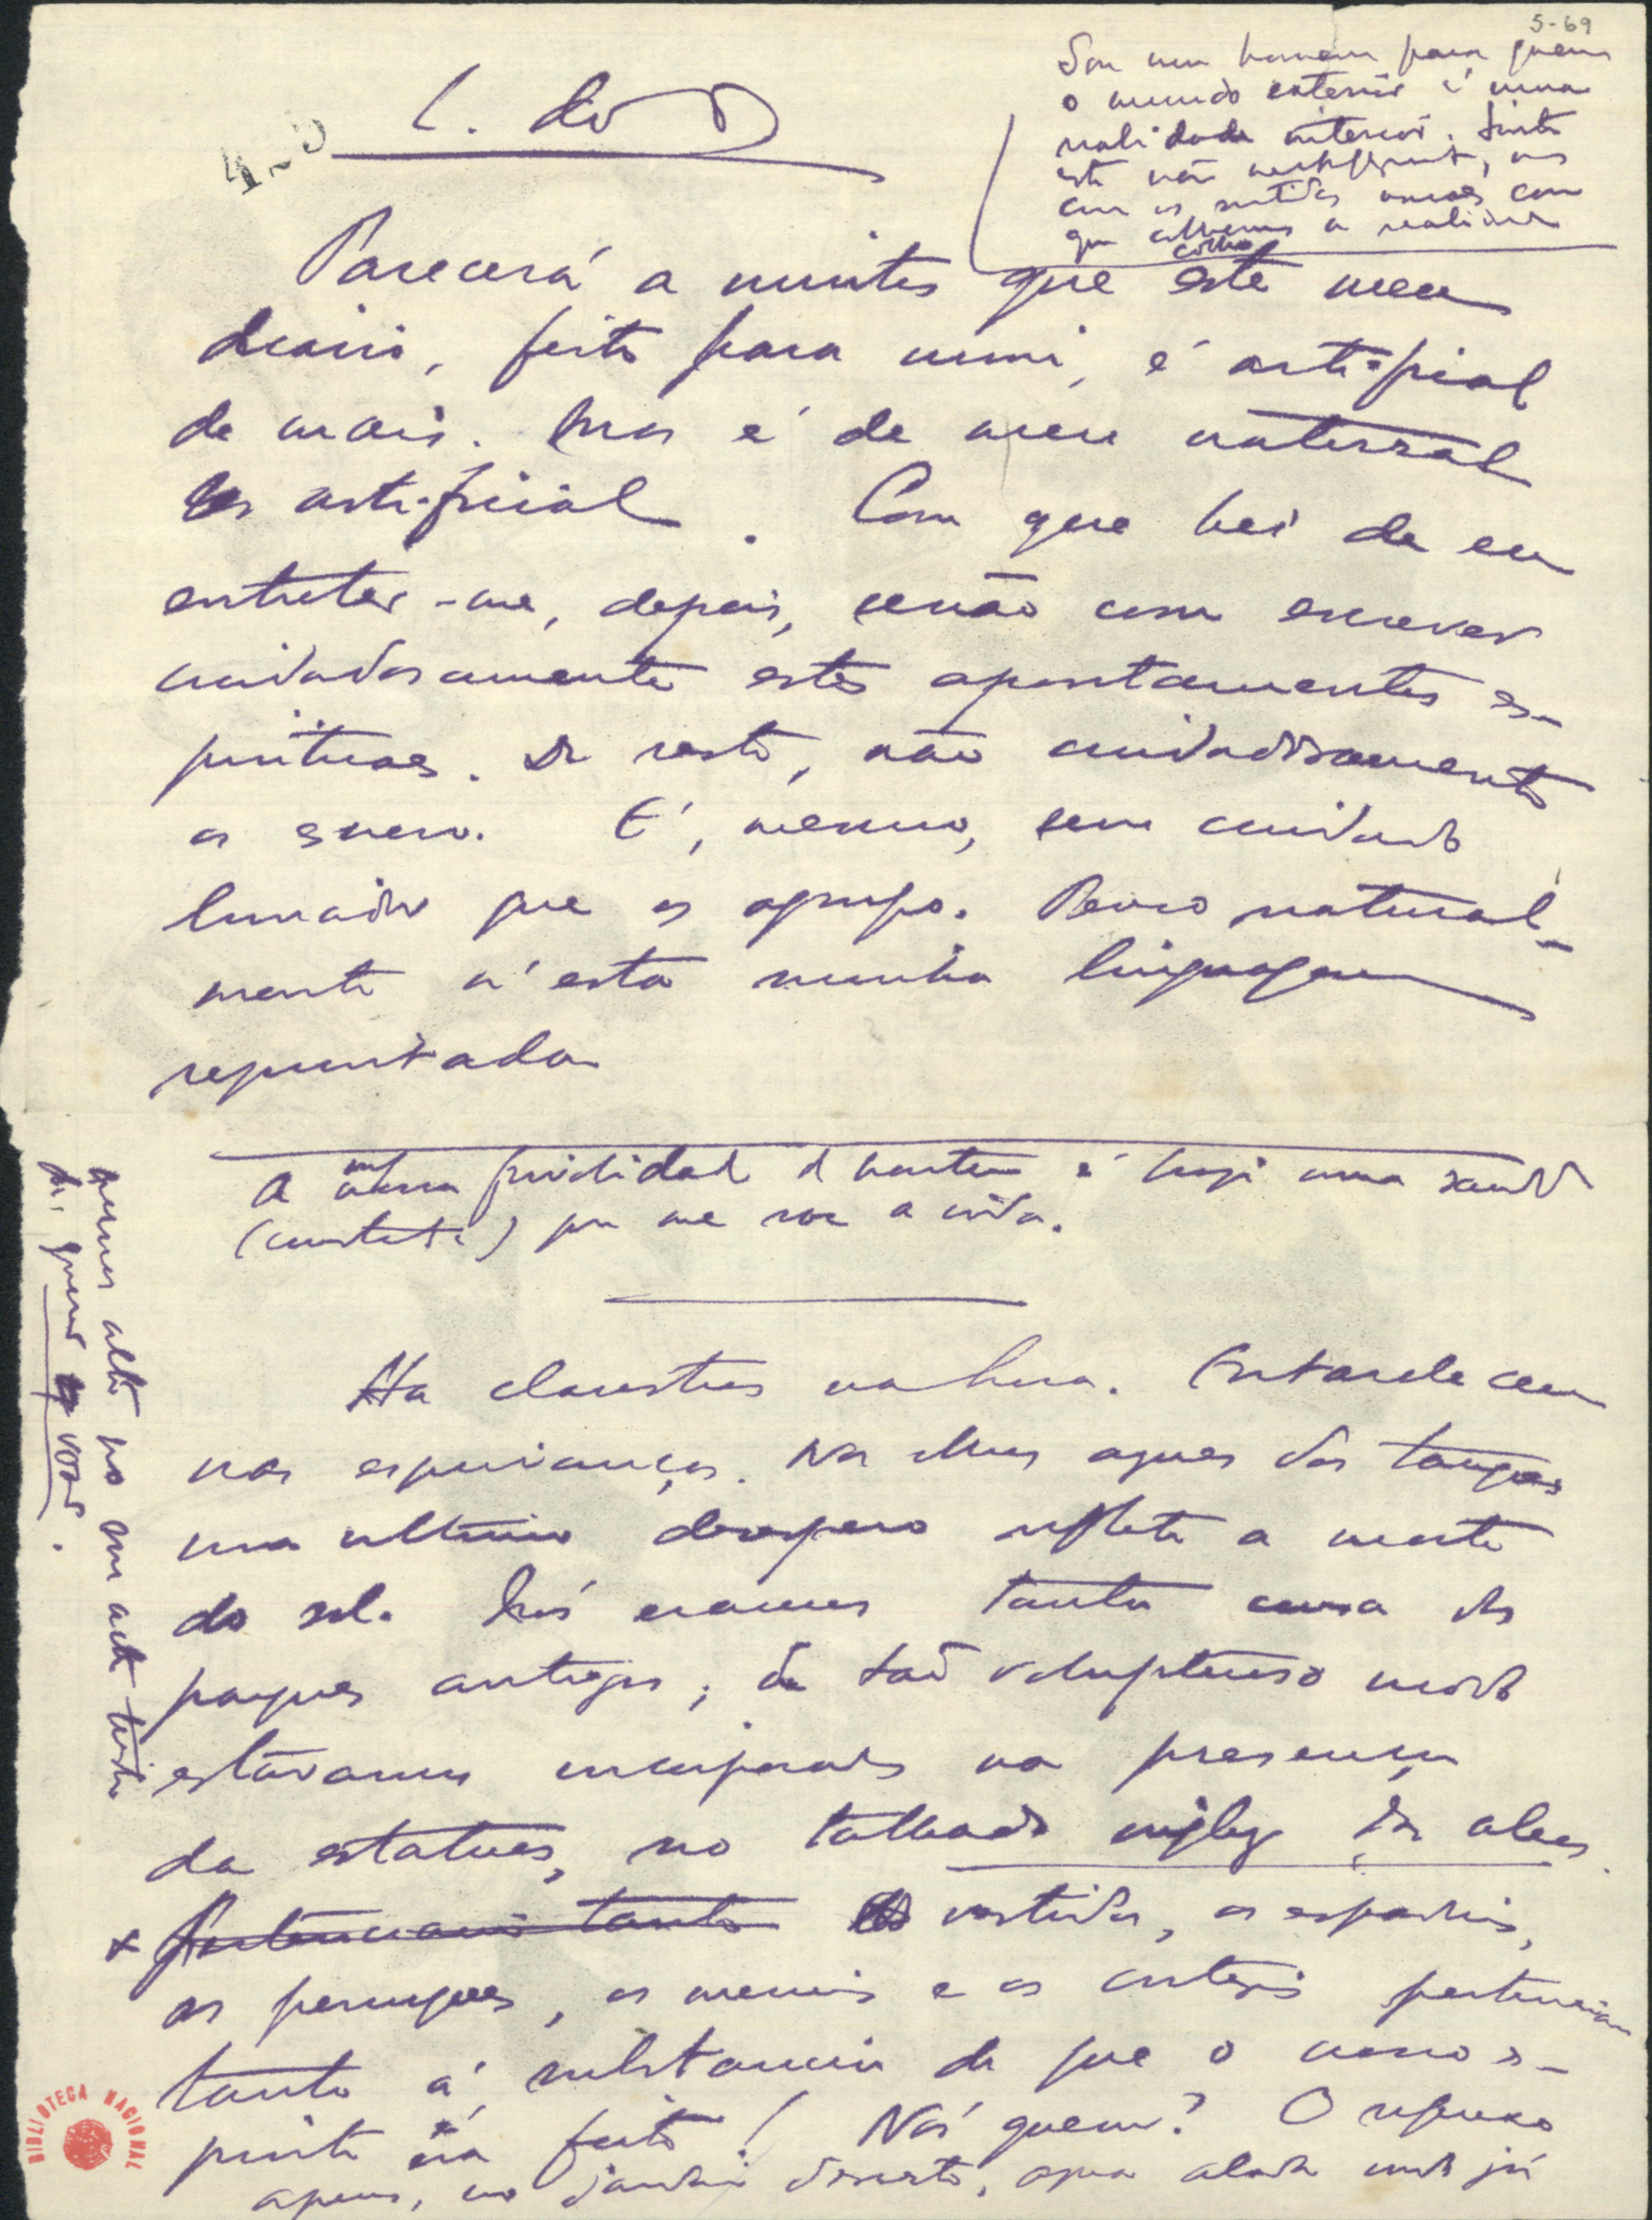 5-69
L. do D
Sou um homem para quem
o mundo exterior é uma
realidade interior. Sinto
isto não metaphysicamente, mas
com os sentidos usuaes com
que colhemos a realidade
colho
Parecerá a muitos que este meu
diario, feito para mim, é artificial
de mais. Mas é de meu natural
ser artificial. Com que hei de eu
entreter-me, depois, senão com escrever
cuidadosamente estes apontamentos es-
pirituaes. De resto, não cuidadosamente
os escrevo. É, mesmo, sem cuidado
limador que os agrupo. Penso natural-
mente n'esta minha linguagem
requintada
A minha frivolidade d'hontem é hoje uma saudade
(constante) que me roe a vida.
Ha claustros na hora. Entardeceu
nas esquivanças. Nos olhos azues dos tanques
um ultimo desespero reflete a morte
do sol. Nós eramos tanta cousa dos
parques antigos; de tão voluptuoso modo
estávamos incorporados na presença
das estatuas, no talhado inglez das aleas.
x Pertenciam tanto Os vestidos, os espadins,
as perruques, os meneios e os cortejos pertenciam
tanto á substancia de que o nosso es-
pirito era feito! Nós quem? O repuxo
apenas, no jardim deserto, agua alada indo já
menos alto no seu acto triste
de querer voar.
BIBLIOTECA NACIONAL